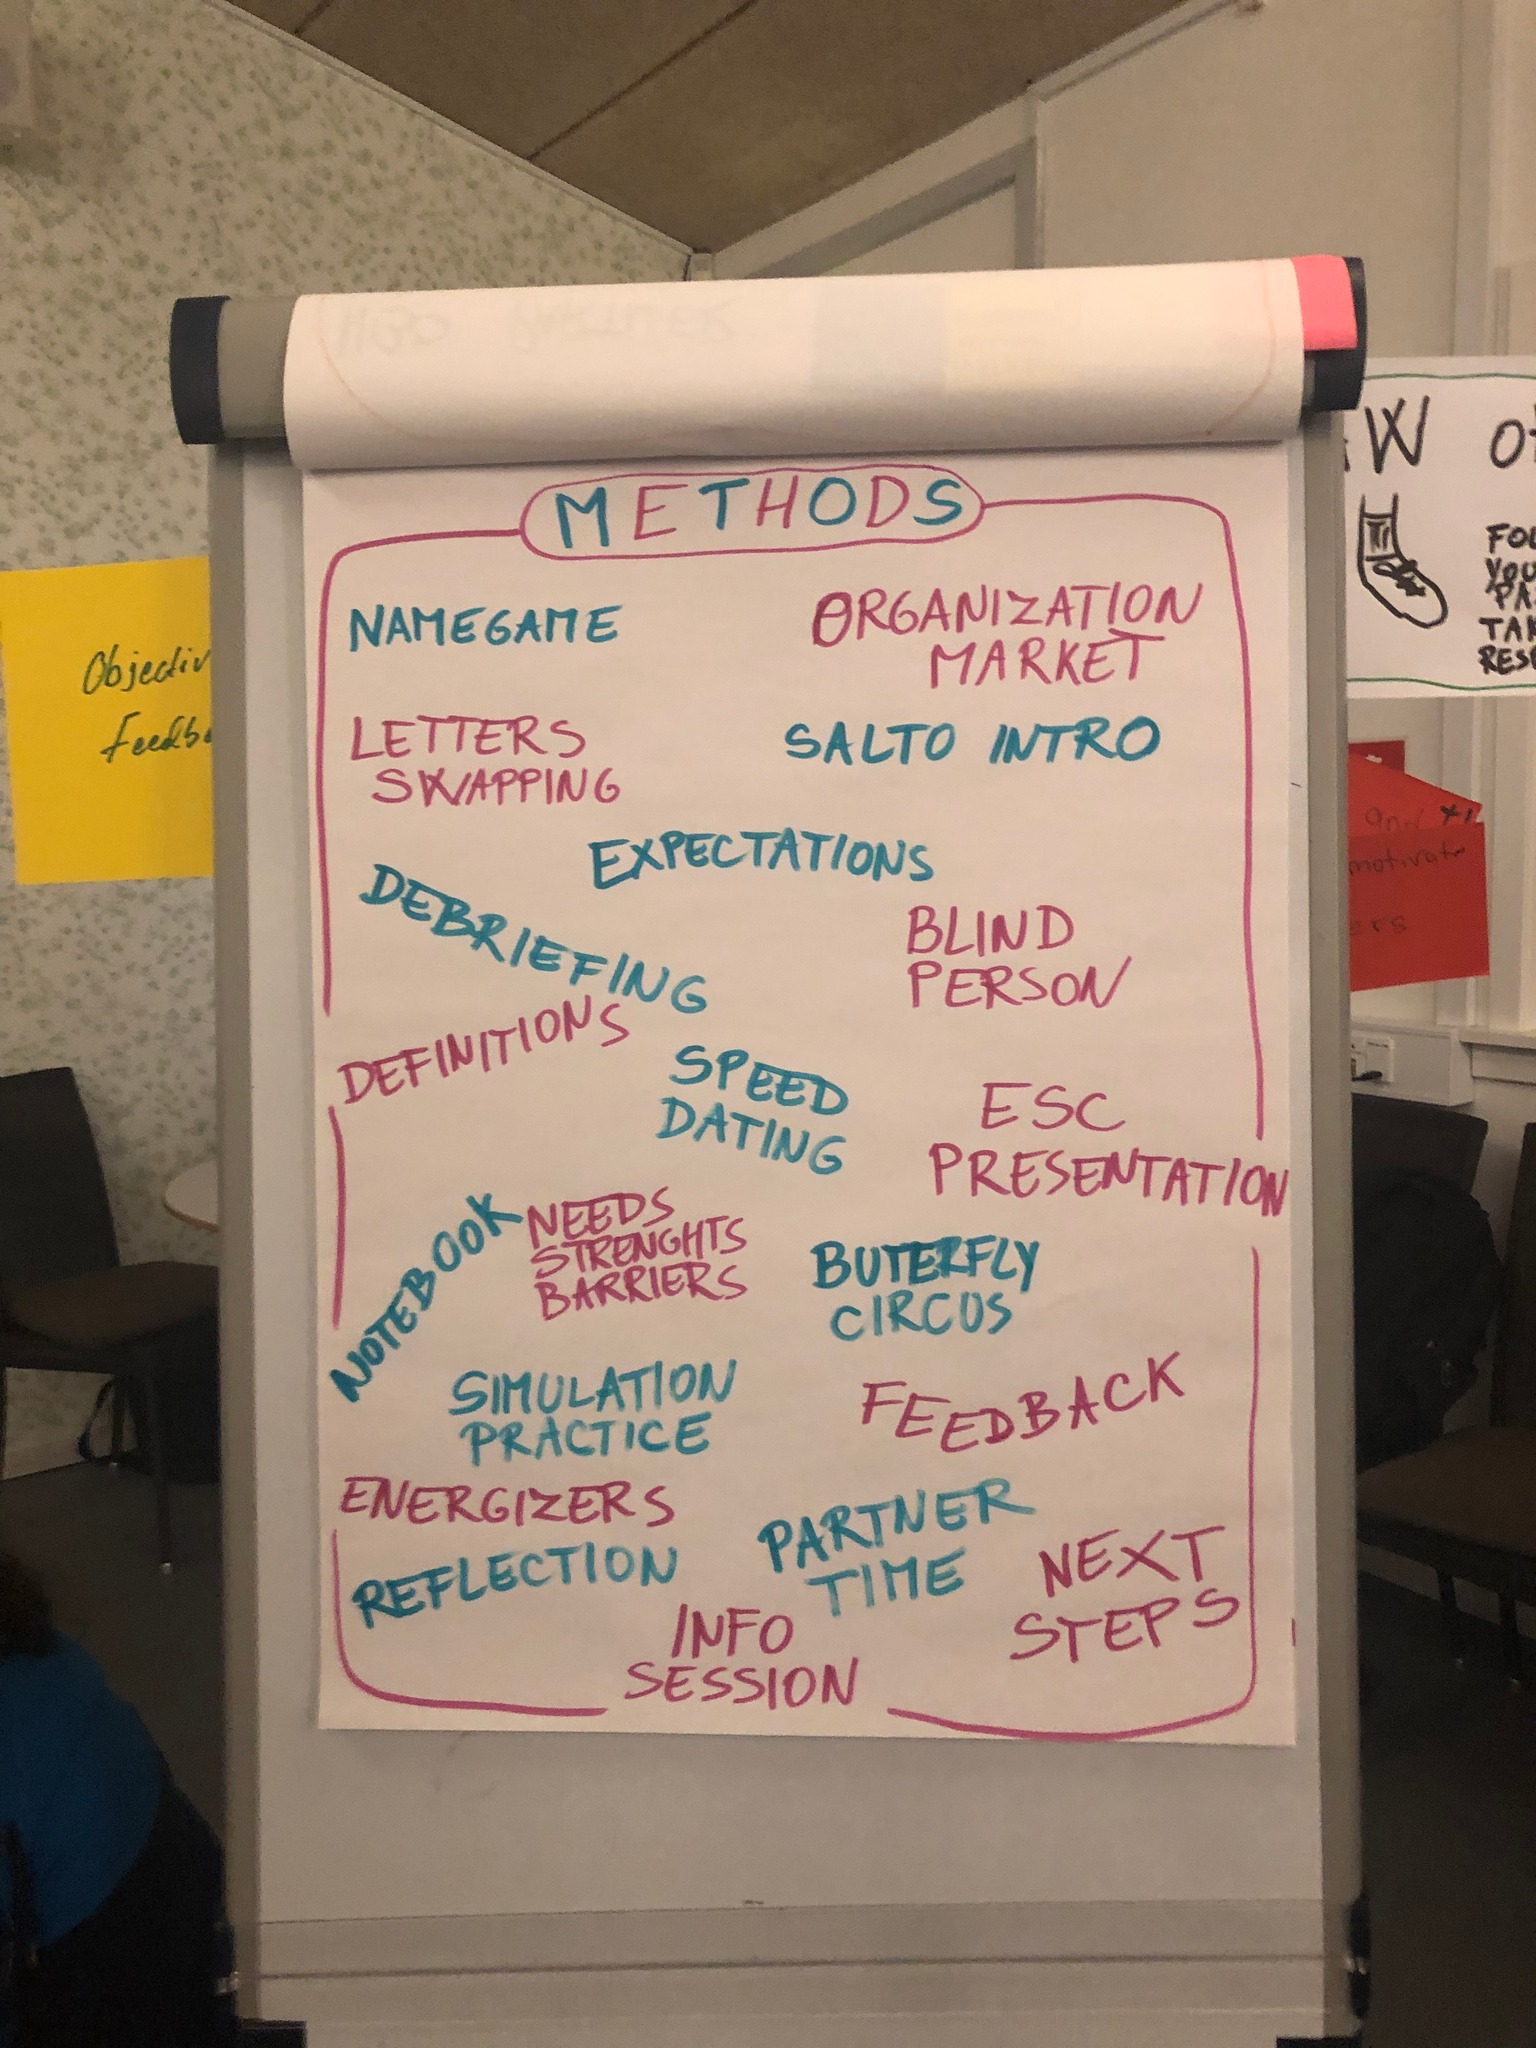 METHODS
NAMEGAME
ORGANIZATION
MARKET
LETTERS
SWAPPING
SALTO INTRO
EXPECTATIONS
DEBRIEFING
BLIND
PERSON
DEFINITIONS
SPEED
DATING
ESC
PRESENTATION
NOTEBOOK
NEEDS
STRENGHTS
BARRIERS
BUTERFLY
CIRCUS
SIMULATION
PRACTICE
FEEDBACK
ENERGIZERS
REFLECTION
PARTNER
TIME
NEXT
STEPS
INFO
SESSION
Objectiv
Feedba
W of
FOL
YOU
PA
TAK
RESP
and
motivate
ers